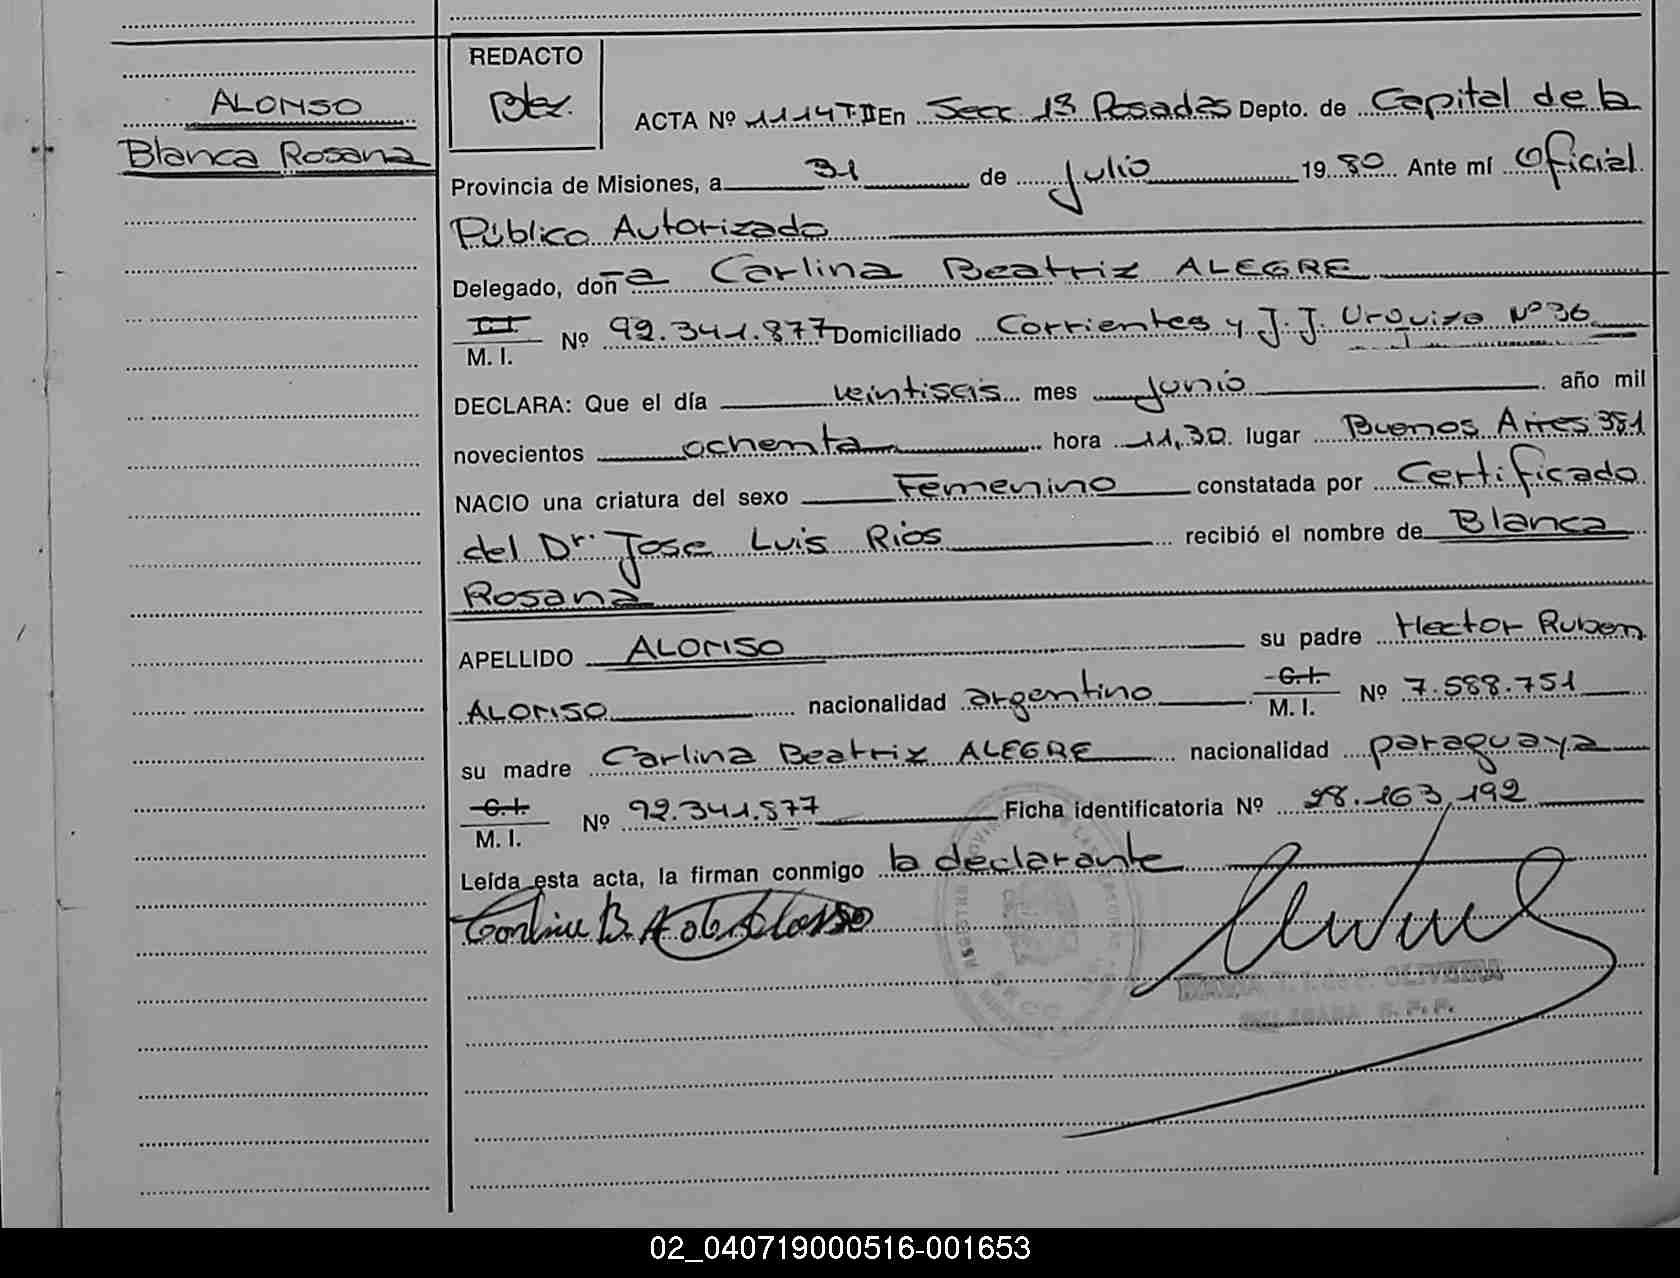 REDACTO
ALONSO
Blanca Rosana
ACTA Nº 1114 T·II En Secc 13 Posadas Depto. de Capital de la
Provincia de Misiones, a 31 de Julio 1980 Ante mí Oficial
Público Autorizado
Delegado, doña Carlina Beatriz ALEGRE
C.I.
M. I. Nº 92.341.877 Domiciliado Corrientes y J. J. Urquiza Nº 36
DECLARA: Que el día veintiseis mes junio año mil
novecientos ochenta hora 11,30 lugar Buenos Aires 351
NACIO una criatura del sexo Femenino constatada por Certificado
del Dr. Jose Luis Rios recibió el nombre de Blanca
Rosana
APELLIDO ALONSO su padre Hector Ruben
ALONSO nacionalidad argentino C.I. M. I. Nº 7.588.751
su madre Carlina Beatriz ALEGRE nacionalidad paraguaya
C.I.
M. I. Nº 92.341.877 Ficha identificatoria Nº 28.163,192
Leída esta acta, la firman conmigo la declarante
OLIVEIRA
02_040719000516-001653